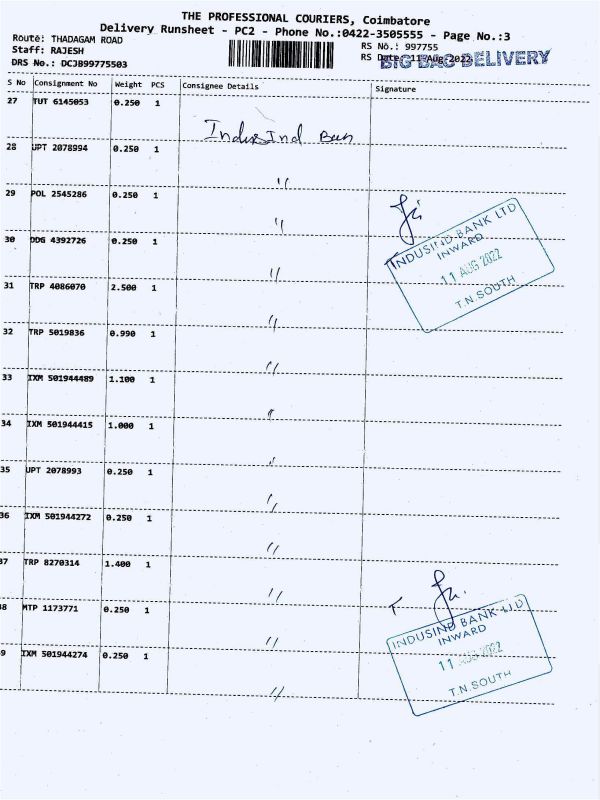 THE PROFESSIONAL COURIERS, Coimbatore
Delivery Runsheet - PC2 - Phone No.:0422-3505555 - Page No.:3
Route: THADAGAM ROAD
Staff: RAJESH
DRS No.: DCJB99775503
RS No.: 997755
RS Date: 11-Aug-2022
BIG BAG DELIVERY
S No Consignment No Weight PCS Consignee Details Signature
27 TUT 6145053 0.250 1
IndusInd Ban
28 UPT 2078994 0.250 1
"
29 POL 2545286 0.250 1
"
30 DDG 4392726 0.250 1
"
31 TRP 4086070 2.500 1
"
32 TRP 5019836 0.990 1
"
33 IXM 501944489 1.100 1
"
34 IXM 501944415 1.000 1
"
35 UPT 2078993 0.250 1
"
36 IXM 501944272 0.250 1
"
37 TRP 8270314 1.400 1
"
38 MTP 1173771 0.250 1
"
39 IXM 501944274 0.250 1
"
INDUSIND BANK LTD
INWARD
11 AUG 2022
T.N.SOUTH
INDUSIND BANK LTD
INWARD
11 AUG 2022
T.N.SOUTH